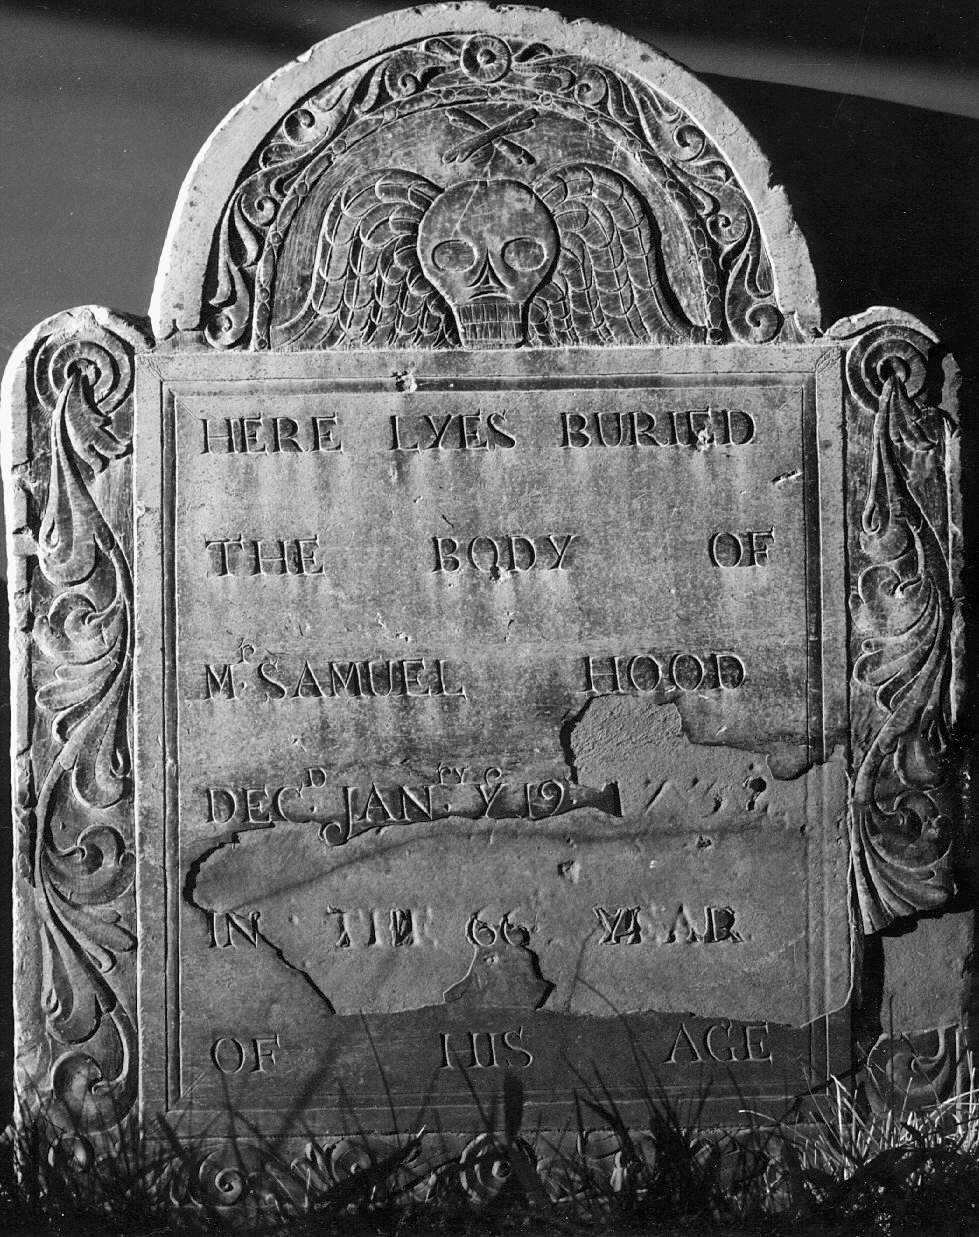 HERE LYES BURIED
THE BODY OF
Mʳ. SAMUEL HOOD
DECᴰ. JANʳʸ. Yᵉ 19
IN THE 66 YEAR
OF HIS AGE